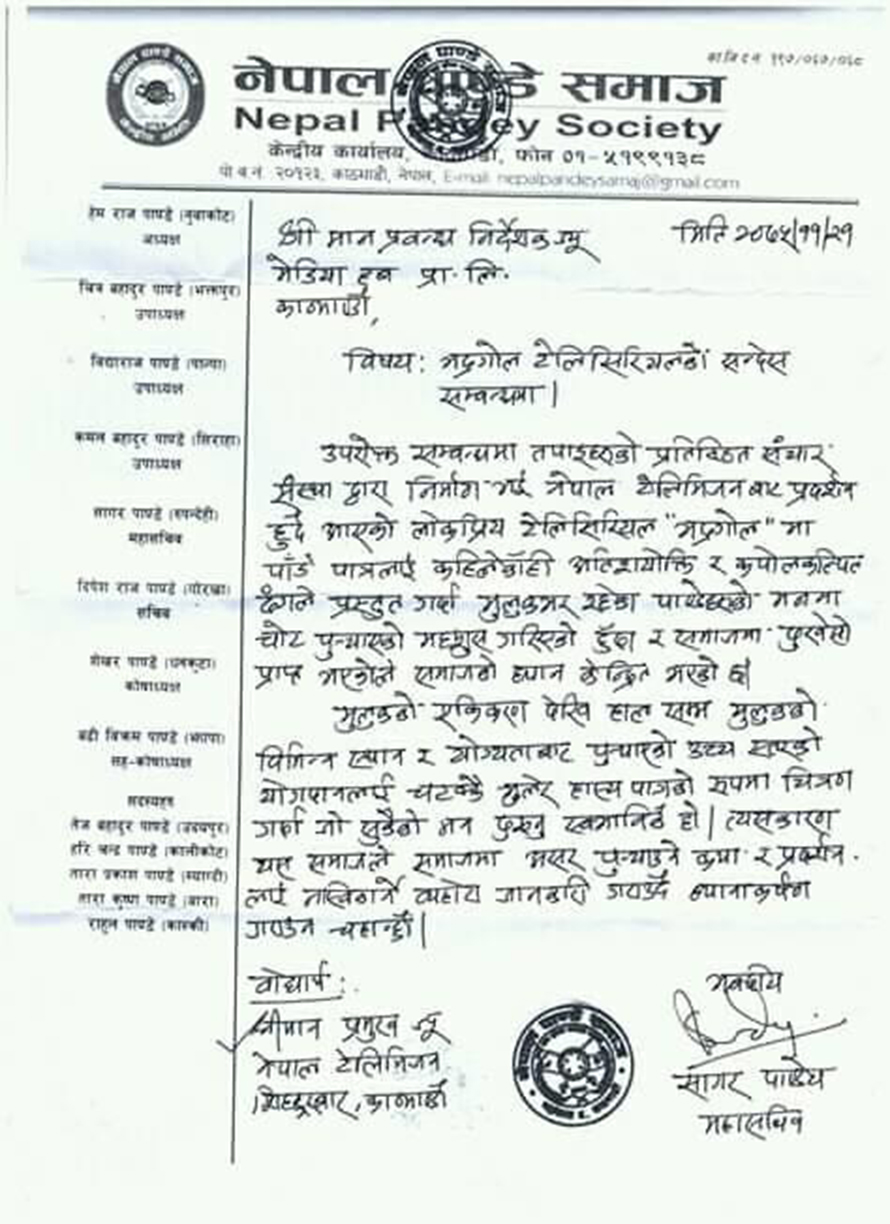 का जि द न ११७/०६७/०६८
नेपाल पाण्डे समाज
Nepal Pandey Society
केन्द्रीय कार्यालय, काठमाडौं, फोन ०१-५१९९१३८
पो.ब.नं. २०१२३, काठमाडौं, नेपाल, E-mail: nepalpandeysamaj@gmail.com
हेम राज पाण्डे (नुवाकोट)
अध्यक्ष
चित्र बहादुर पाण्डे (भक्तपुर)
उपाध्यक्ष
विद्याराज पाण्डे (पाल्पा)
उपाध्यक्ष
कमल बहादुर पाण्डे (सिराहा)
उपाध्यक्ष
सागर पाण्डे (रुपन्देही)
महासचिव
दिपेश राज पाण्डे (गोरखा)
सचिव
शेखर पाण्डे (धनकुटा)
कोषाध्यक्ष
बद्री विक्रम पाण्डे (झापा)
सह-कोषाध्यक्ष
सदस्यहरु
तेज बहादुर पाण्डे (उदयपुर)
हरि चन्द्र पाण्डे (कालीकोट)
तारा प्रकाश पाण्डे (म्याग्दी)
तारा कृष्ण पाण्डे (बारा)
राहुल पाण्डे (कास्की)
मिति २०७५/११/२१
श्री मान प्रवन्ध निर्देशक ज्यू
मेडिया हब प्रा. लि.
काठमाण्डौ,
विषय: भद्रगोल टेलिसिरियलको सन्देस
सम्वन्धमा।
उपरोक्त सम्वन्धमा तपाइहरुको प्रतिष्ठित संचार
संस्था द्वारा निर्माण भई नेपाल टेलिभिजन बाट प्रदर्शन
हुदै आएको लोकप्रिय टेलिसिरियल "भद्रगोल" मा
पाँडे पात्रलाई कहिलेकाँही अतिशयोक्ति र कपोलकल्पित
ढंगले प्रस्तुत गर्दा मुलुकभर रहेका पाण्डेहरुको मनमा
चोट पुऱ्याएको महशुस गरिएको हुँदा र समाजमा
प्राप्त भएकोले समाजको ध्यान केन्द्रित भएको छ।
मुलुकको एकिकरण देखि हाल सम्म मुलुकको
विभिन्न स्थान र योग्यताबाट पुऱ्याएको उच्च स्तरको
योगदानलाई चटक्कै भुलेर हास्य पात्रको रुपमा चित्रण
गर्दा जो सुकैको मन दुख्नु स्वभाविकै हो। त्यसकारण
यस समाजले समाजमा असर पुऱ्याउने कथा र प्रदर्शन
लाई नदिनहुने व्यहोरा जानकारी गराउँदै ध्यानाकर्षण
गराउन चहान्छौ।
वोधार्थ:
श्रीमान प्रमुख ज्यू
नेपाल टेलिभिजन
सिंहदरवार, काठमाडौं
भवदीय
सागर पाण्डेय
महासचिव